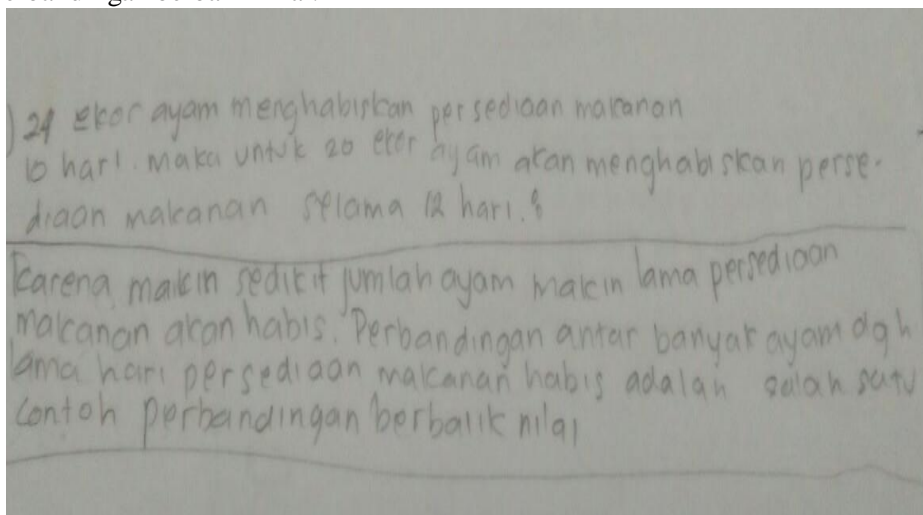 ) 24 Ekor ayam menghabiskan persediaan makanan
10 hari. Maka untuk 20 ekor ayam akan menghabiskan perse-
diaan makanan selama 12 hari.
Karena makin sedikit jumlah ayam makin lama persediaan
makanan akan habis. Perbandingan antar banyak ayam dgh
lama hari persediaan makanan habis adalah salah satu
Contoh perbandingan berbalik nilai